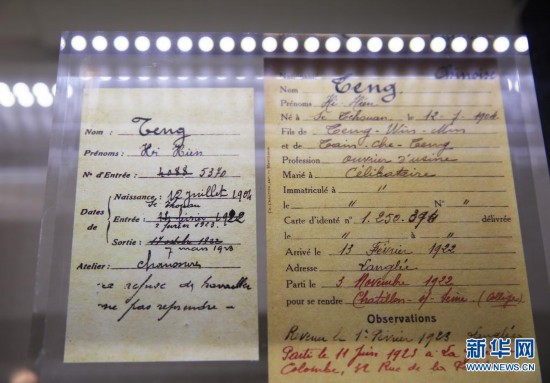 Nom : Teng
Prénoms : Hi Hien
N° d'Entrée : 4088 5370
Naissance : 12 juillet 1904
Dates de
Entrée : 14 février 1922
2 février 1923
Sortie : 17 octobre 1922
7 mars 1923
Atelier : Chaussures
a refusé de travailler
ne pas reprendre —
Chinoise
Nom Teng
Prénoms Hi Hien
Né à Se Tchouan, le 12-7-1904
Fils de Teng-Win-Min
et de Tam-Che-Teng
Profession ouvrier d'usine
Marié à Célibataire
Immatriculé à "
le " N° "
Carte d'identité n° 1.250.394 délivrée
le " à "
Arrivé le 13 Février 1922
Adresse Langlée
Parti le 3 Novembre 1922
pour se rendre Chatillon-s/-Seine (Collège)
Observations
Revenu le 1er Février 1923 Langlée
Parti le 11 Juin 1923 à La
Colombe, 39 Rue de la
新华网
WWW.NEWS.CN